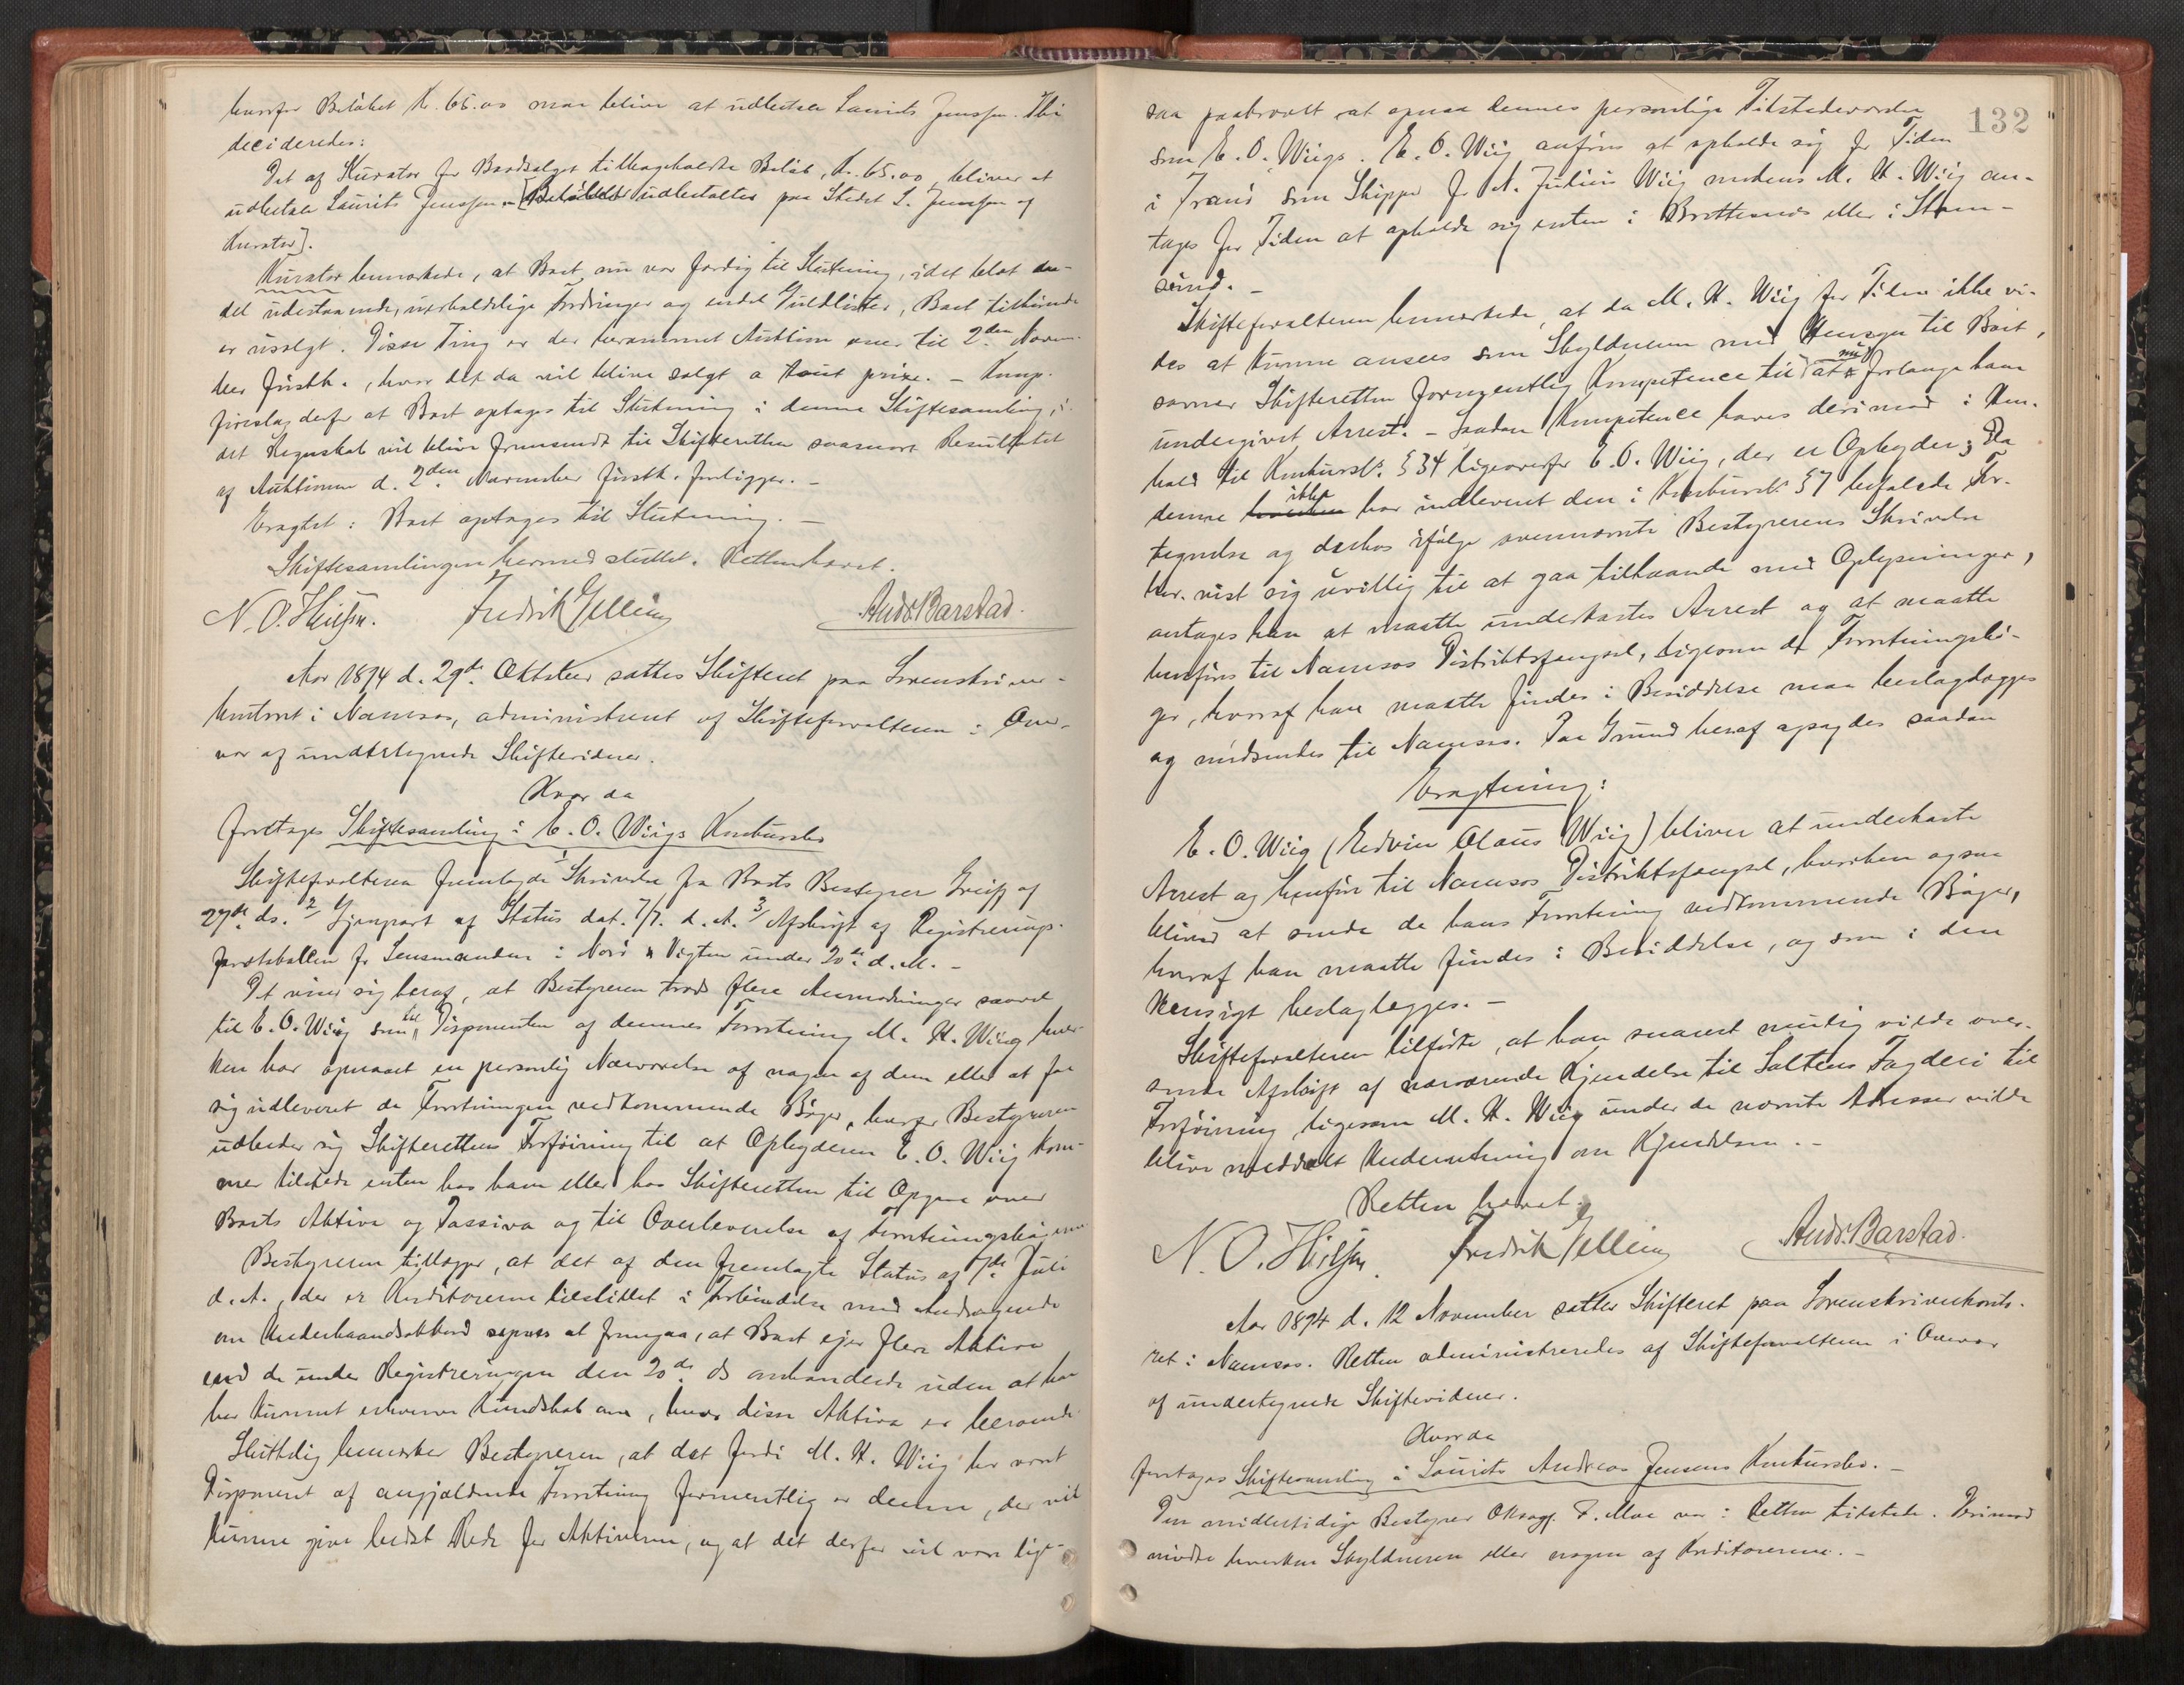 hvorfor Beløbet Kr. 65.00 maa blive at udbetale Laurits Jenssen. Thi
decideredes:
Det af Kurator for Baadsalget tilbageholdte Beløb, Kr. 65.00 bliver at
udbetale Laurits Jenssen. [Beløbet udbetaltes paa Stedet L. Jenssen af
Kurator].
Kurator bemærkede, at Boet nu var færdig til Slutning, idet blot en-
del udestaaende, uerholdelige Fordringer og endel Guldlister, Boet tilhørende
er usolgt. Disse Ting er der berammet Auktion over til 2den Novem-
ber førstk., hvor det da vil blive solgt a tout prix. - Komp.
foreslog derfor at Boet optages til Slutning i denne Skiftesamling, i-
det Regnskab vil blive fremsendt til Skifteretten saasnart Resultatet
af Auktionen d. 2den November førstk. foreligger. -
Eragtet: Boet optages til Slutning. -
Skiftesamlingen hermed sluttet. Retten hævet.
N. O. Fredrik Gelling Andr. Barstad.
Aar 1894 d. 29de Oktober sattes Skifteret paa Sorenskriver-
kontoret i Namsos, administreret af Skifteforvalteren i Over-
vær af undertegnede Skiftevidner.
Hvor da
foretages Skiftesamling i E. O. Wiigs Konkursbo
Skifteforvalteren fremlagde 1/ Skrivelse fra Boets Bestyrer Greiff af
27de ds. 2/ Gjenpart af Status dat. 7/7. d. A. 3/ Afskrift af Registrerings-
protokollen for Lensmanden i Nord Vigten under 20de d. M. -
Det viser sig heraf, at Bestyreren trods flere Anmodninger saavel
til E. O. Wiig som til Disponenten af dennes Forretning M. H. Wiig hver-
ken har opnaaet en personlig Nærværelse af nogen af dem eller at faa
sig udleveret de Forretningen vedkommende Bøger, hvorfor Bestyreren
udbeder sig Skifterettens Forføining til at Opbyderen E. O. Wiig kom-
mer tilstede enten hos ham eller hos Skifteretten til Opgave over
Boets Aktiva og Passiva og til Overleverelse af Forretningsbøgerne
Bestyreren tillægger, at det af den fremlagte Status af 7de Juli
d. A., der er Kreditorerne tilstillet i Forbindelse med Andragende
om Underhaandsakkord synes at fremgaa, at Boet ejer flere Aktiva
end de under Registreringen den 20de ds anmeldte uden at han
har kunnet erhverve Kundskab om, hvor disse Aktiva er beroende
Sluttelig bemærker Bestyreren, at det fordi M. H. Wiig har været
Disponent af angjældende Forretning formentlig er denne, der vil
kunne give bedst Rede for Aktiverne, og at det derfor vil være lige-
132
saa paakrævet at opnaa dennes personlige Tilstedeværelse
som E. O. Wiigs. E. O. Wiig anføres at opholde sig for Tiden
i som Skipper for A. Julius Wiig medens M. H. Wiig an-
tages for Tiden at opholde sig enten i Brettesnes eller i Skem-
sund. -
Skifteforvalteren bemærkede, at da M. H. Wiig for Tiden ikke vi-
des at kunne ansees som Skyldneren med Hensyn til Boet,
savner Skifteretten formentlig Kompetence til nu at forlange ham
undergivet Arrest. - Saadan Kompetence haves derimod i Hen-
hold til Konkursl. § 34 ligeoverfor E. O. Wiig, der er Opbyder; Da
denne ikke har indleveret den i Konkursl. § 7 befalede For-
tegnelse og derhos ifølge ovennævnte Bestyrerens Skrivelse
har vist sig uvillig til at gaa tilhaande med Oplysninger,
antages han at maatte underkastes Arrest og at maatte
henføres til Namsos Distriktsfængsel, ligesom de Forretningsbø-
ger, hvoraf han maatte findes i Besiddelse maa beslaglægges
og nedsendes til Namsos. Paa Grund heraf afsagdes saadan
Eragtning:
E. O. Wiig (Edvin Olaus Wiig) bliver at underkaste
Arrest og henføre til Namsos Distriktsfængsel, hvorhen ogsaa
bliver at sende de hans Forretning vedkommende Bøger,
hvoraf han maatte findes i Besiddelse, og som i den
Hensigt beslaglægges. -
Skifteforvalteren tilførte, at han snarest mulig vilde over-
sende Afskrift af nærværende Kjendelse til Saltens Fogderi til
Forføining ligesom M. H. Wiig under de nævnte Adresser vilde
blive meddelt Underretning om Kjendelsen. -
Retten hævet.
N. O. Fredrik Gelling Andr. Barstad.
Aar 1894 d. 12 November sattes Skifteret paa Sorenskriverkonto-
ret i Namsos. Retten administreredes af Skifteforvalteren i Overvær
af undertegnede Skiftevidner.
Hvor da
foretages Skiftesamling i Laurits Andreas Jensens Konkursbo. -
Den midlertidige Bestyrer Oksagf. F. Moe var i Retten tilstede. Derimod
mødte hverken Skyldneren eller nogen af Kreditorerne. -